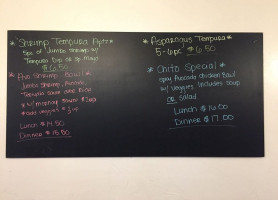 * Shrimp Tempura Aptz *
5pc of Jumbo Shrimp w/
Tempura Dip or Sp. Mayo
$6.50
* Five Shrimp Bowl *
Jumbo Shrimp, Avocado,
Teriyaki sauce over Rice
* w/ mixed
* add veggies $3 up
Lunch $14.50
Dinner $15.50
* Asparagus Tempura *
5-6pc $6.50
* Chito Special *
spicy Avocado chicken Bowl
w/ veggies. Includes soup
OR salad
Lunch $16.00
Dinner $17.00